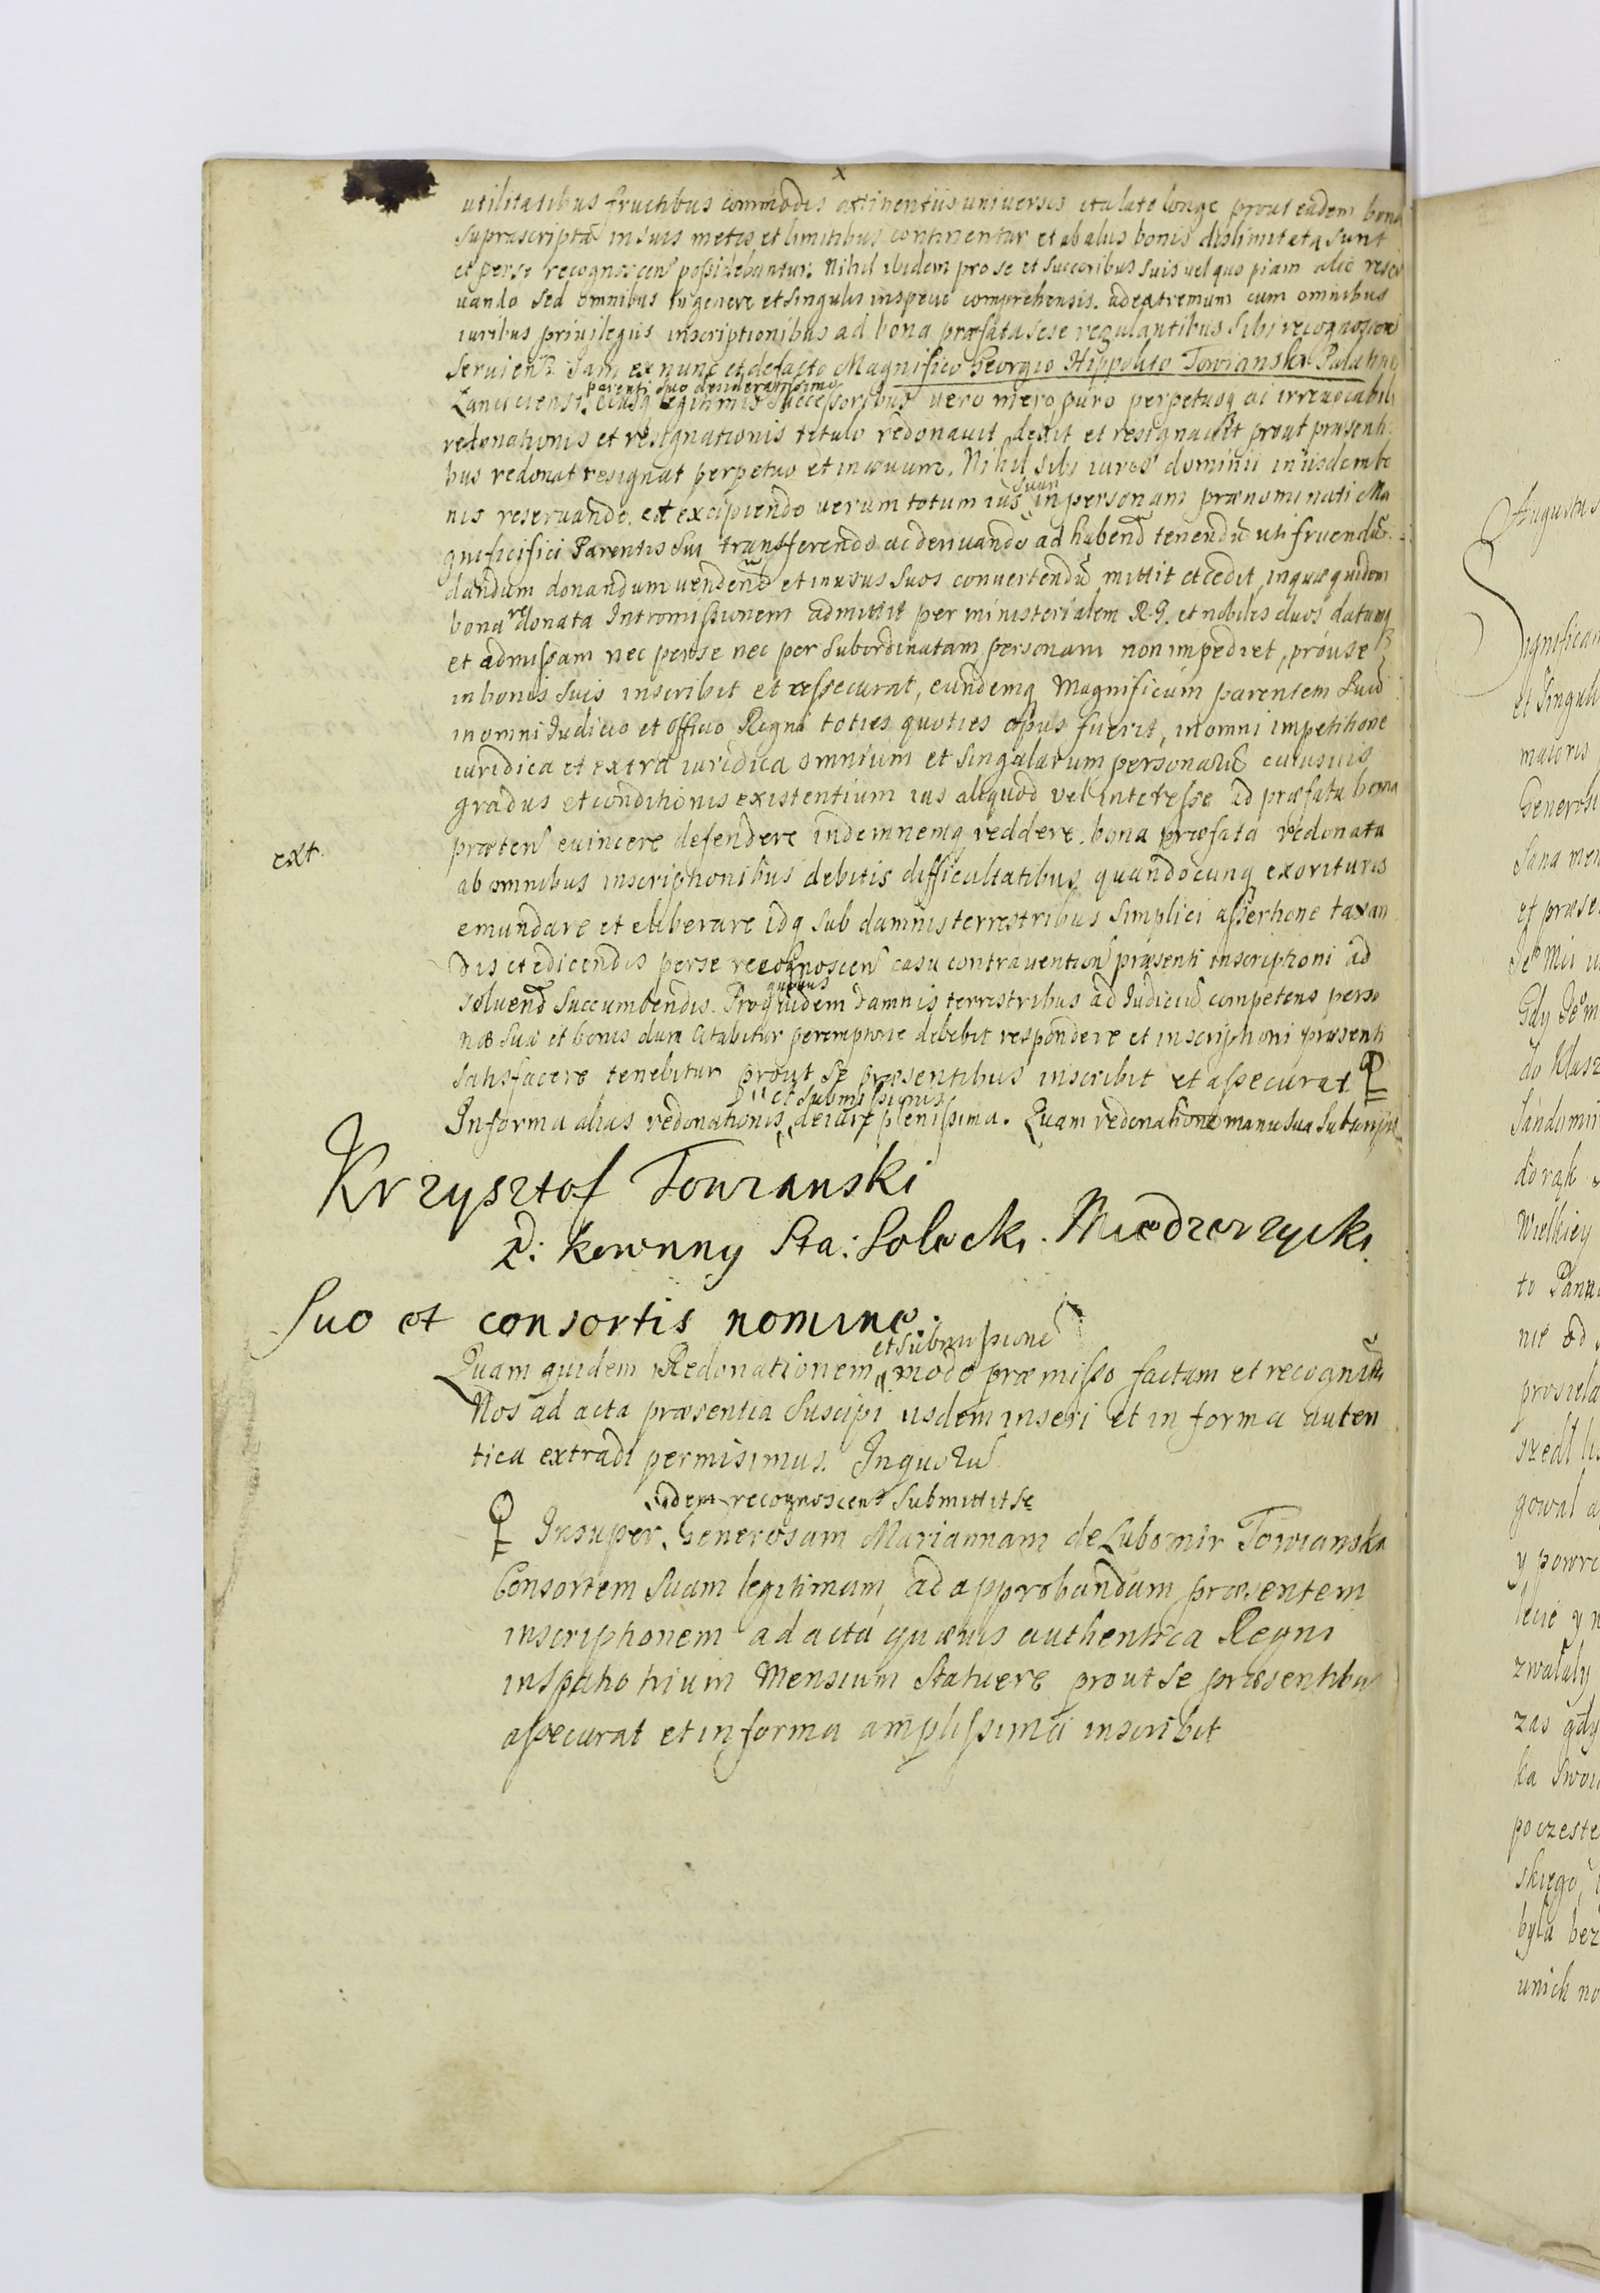 utilitatibus fructibus commodis attinentiis universis ita late longe prout eadem bona
suprascripta in suis metis et limitibus continentur et ab aliis bonis dislimitata sunt
et per se recognoscen possidebantur. Nihil ibidem pro se et succoribus suis vel quo piam alio reser
vando sed omnibus in genere et singulis in specie comprehensis. ad extremum cum omnibus
iuribus privilegiis inscriptionibus ad bona præfata sese regulantibus sibi recognoscen
servien Jam ex nunc et de facto Magnifico Georgio Hippolito Towianski Palatino
parenti suo
Lanciciensi eiusq legitimis successoribus vero mero puro perpetuoq ac irrevocabili
redonationis et resignationis titulo redonavit dedit et resignavit prout præsenti
bus redonat resignat perpetuo et in ævum. Nihil sibi iuris dominii in iisdem bo
suum
nis reservando et excipiendo verum totum ius in personam prænominati Ma
gnificifici Parentis sui transferendo ac derivando ad habend tenendu uti fruendu
dandum donandum vendend et in usus suos convertendu mittit et cedit, in quæ quidem
bona redonata Intromissionem admittit per ministerialem R. G. et nobiles duos datamq
et admissam nec per se nec per subordinatam personam non impediet, prout se
in bonis suis inscribit et assecurat, eundemq Magnificum parentem suu
in omni Judicio et Officio Regni toties quoties opus fuerit, in omni impetitione
iuridica et extra iuridica omnium et singularum personaru cuiusvis
gradus et conditionis existentium ius aliquod vel interesse ad præfata bona
præten evincere defendere indemnemq reddere. bona præfata redonata
ext.
ab omnibus inscriptionibus debitis difficultatibus quandocunq exorituris
emundare et eliberare idq sub damnis terrestribus simplici assertione taxan
dis et edicendis per se recognoscen casu contravention præsenti inscriptioni ad
quibus
solvend succumbendis. Pro quidem damnis terrestribus ad Judiciu competens perso
næ suæ et bonis dum citabitur peremptorie debebit respondere et inscriptioni præsenti
satisfacere tenebitur prout se præsentibus inscribit et assecurat
et submissionis
In forma alias redonationis de iure plenissima. Quam redonatione manu sua subscripsit
Krzysztof Towianski
P: kownny Sta: Soleck. Miedzerzycki
Suo et consortis nomine.
et submissione
Quam quidem Redonationem modo præmisso factam et recognita
Nos ad acta præsentia suscipi iisdem inseri et in forma auten
tica extradi permisimus. In quoru
idem recognoscens submittit se
Insuper Generosam Mariannam de Lubomir Towianska
Consortem suam legitimam ad approbandum præsentem
inscriptionem ad acta quævis authentica Regni
in spatio trium Mensium statuere prout se præsentibus
assecurat et in forma amplissima inscribit
Augustus
et singul
maioris
Generosi
Sana men
et præse
Gdy
do Klasz
Sandomir
Wielkiey
to Panu
nie od
gowal
y powro
lecie y
zwalaly
zas gdy
ka swoi
poczeste
skiego
byla bez
unich no